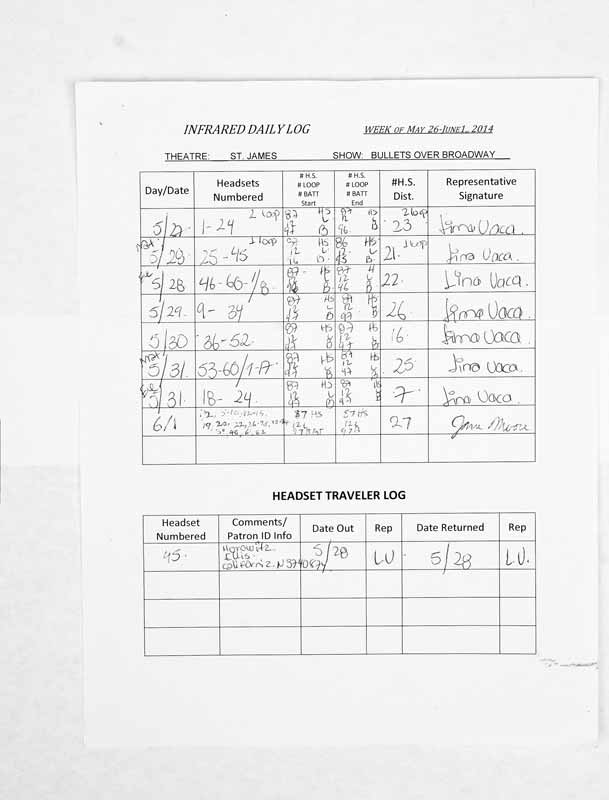 INFRARED DAILY LOG WEEK OF MAY 26-JUNE1, 2014
THEATRE: ST. JAMES SHOW: BULLETS OVER BROADWAY
Day/Date Headsets Numbered # H.S. # LOOP # BATT Start # H.S. # LOOP # BATT End #H.S. Dist. Representative Signature
5/27 1-24 2 loop 87 HS 12 L 47 B 87 HS 12 L 46 B 23 2 loop Lina Vaca.
Mat 5/28 25-45 1 loop 87 HS 12 L 46 B 86 HS 12 L 45 B 21. 1 loop Lina Vaca.
Eve 5/28 46-60-1/8. 87 HS 12 L B 87 H 12 L 46 B 22. Lina Vaca
5/29. 9- 34 87 HS 12 L 47 B 87 HS 12 L 47 B 26 Lina Vaca
5/30 36-52. 87 HS 12 L 47 B 87 HS 12 L 47 B 16. Lina Vaca
Mat 5/31. 53-60/1-17 87 HS 12 L 47 B 87 HS 12 L 47 B 25. Lina Vaca.
Eve 5/31. 18- 24. 87 HS 12 L 47 B 87 HS 12 L 47 B 7. Lina Vaca.
6/1 87 HS 87 HS 27
HEADSET TRAVELER LOG
Headset Numbered Comments/ Patron ID Info Date Out Rep Date Returned Rep
45. Horowitz. Ellis. California. 5/28 L.V. 5/28 L.V.